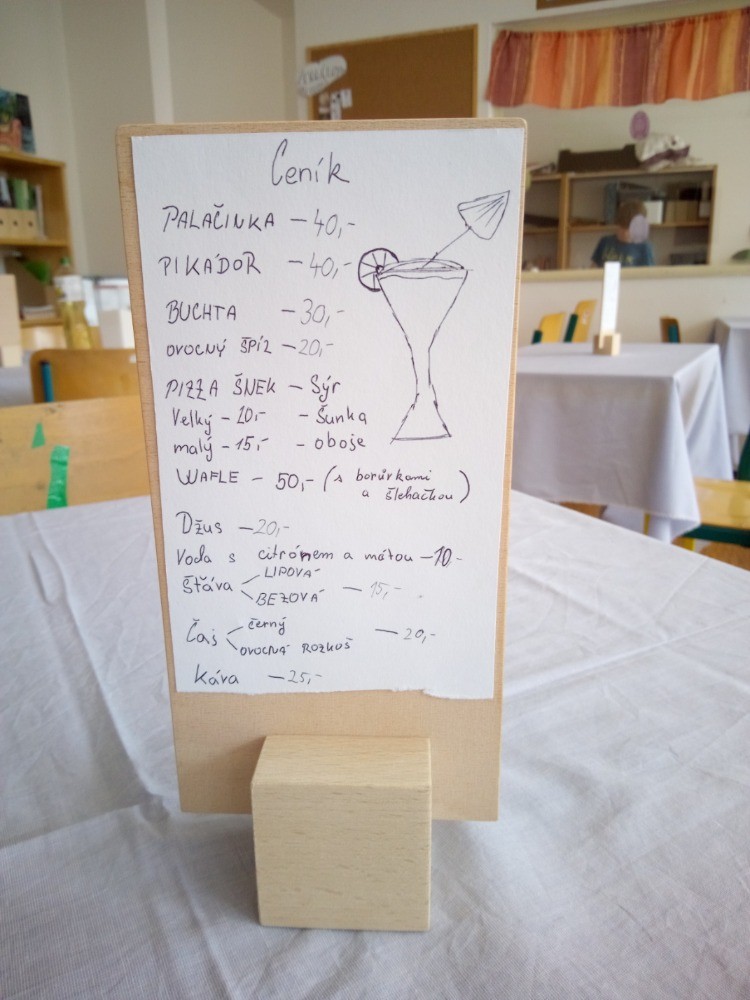 Ceník
PALAČINKA – 40,-
PIKADOR – 40,-
BUCHTA – 30,-
OVOCNÝ ŠPÍZ – 20,-
PIZZA ŠNEK – Sýr
Velký – 20,- – Šunka
malý – 15,- – oboje
WAFLE – 50,- (s borůvkami
a šlehačkou)
Džus – 20,-
Voda s citrónem a mátou – 10,-
LIPOVÁ
Šťáva – 15,-
BEZOVÁ
černý
Čaj – 20,-
OVOCNÁ ROZKOŠ
Káva – 25,-